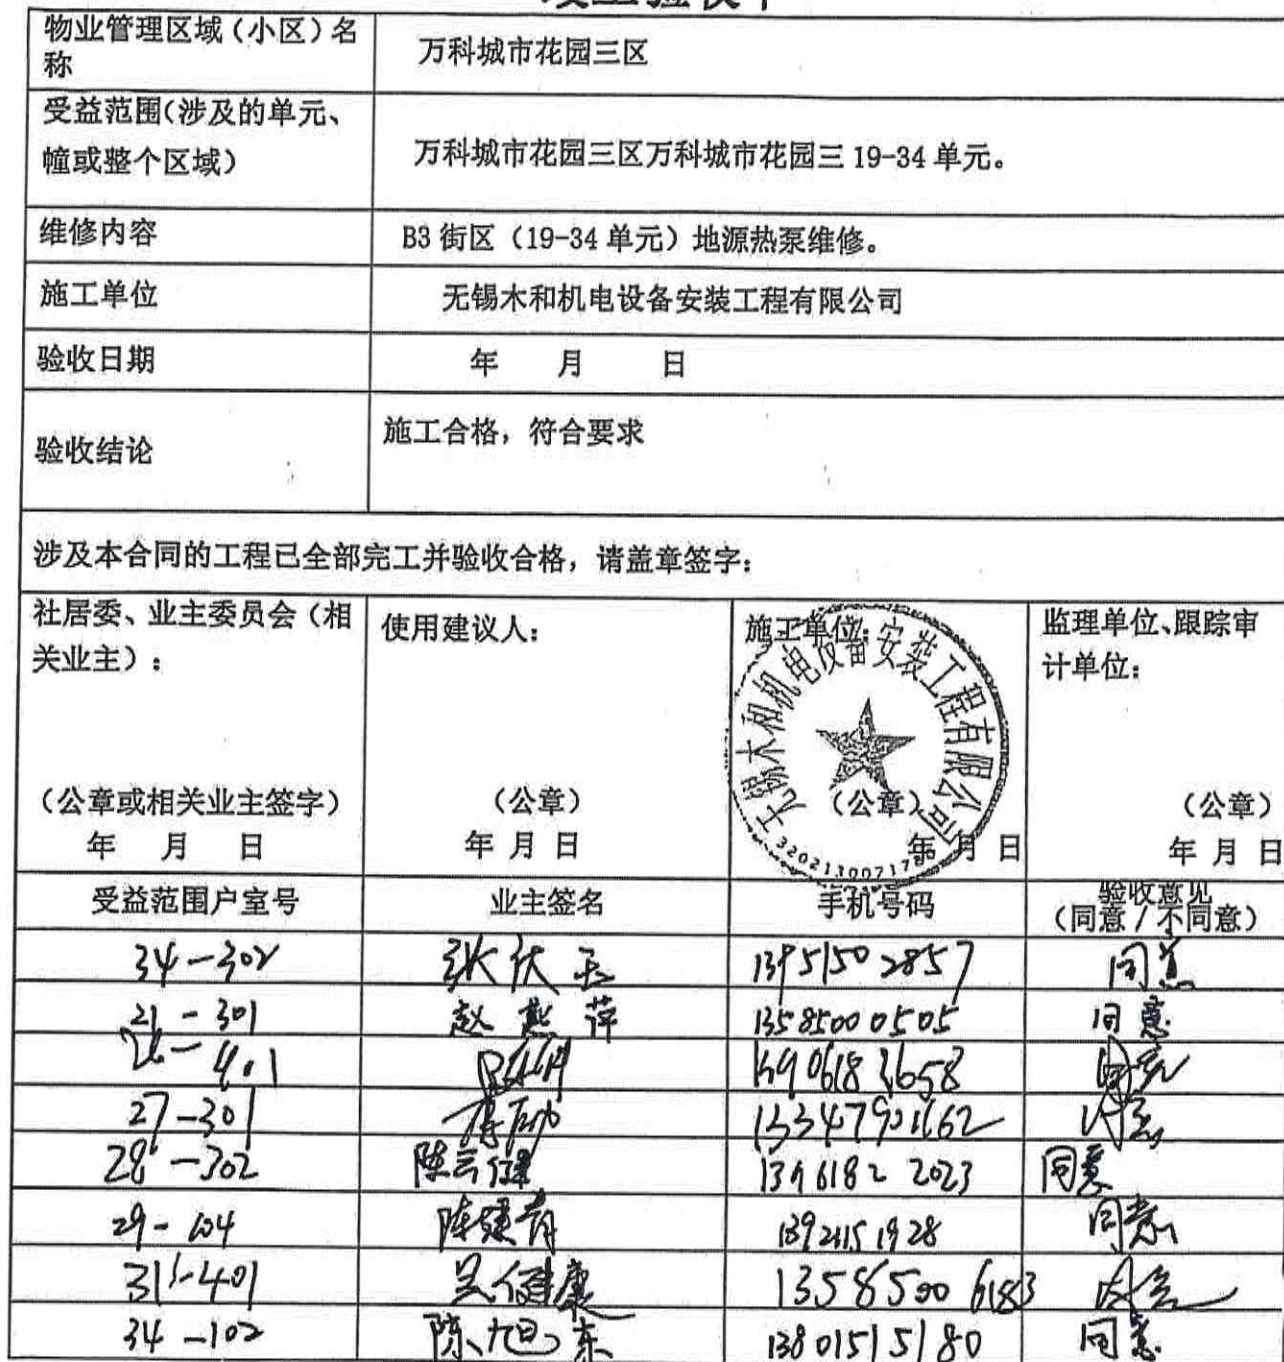 竣工验收单
物业管理区域（小区）名
称
万科城市花园三区
受益范围（涉及的单元、
幢或整个区域）
万科城市花园三区万科城市花园三 19-34 单元。
维修内容
B3 街区（19-34 单元）地源热泵维修。
施工单位
无锡木和机电设备安装工程有限公司
验收日期
年 月 日
验收结论
施工合格，符合要求
涉及本合同的工程已全部完工并验收合格，请盖章签字：
社居委、业主委员会（相
关业主）：
（公章或相关业主签字）
年 月 日
使用建议人：
（公章）
年 月 日
施工单位：
无锡木和机电设备安装工程有限公司
（公章）
年 月 日
监理单位、跟踪审
计单位：
（公章）
年 月 日
受益范围户室号 业主签名 手机号码 验收意见
（同意 / 不同意）
34-302 13951502857 同意
21-301 赵燕萍 13585000505 同意
26-401 同意
27-301 同意
28-302 陈云 13961822023 同意
29-104 陈建青 13921151928 同意
31-401 吴健康 13585006183 同意
34-102 陈旭东 13801515180 同意